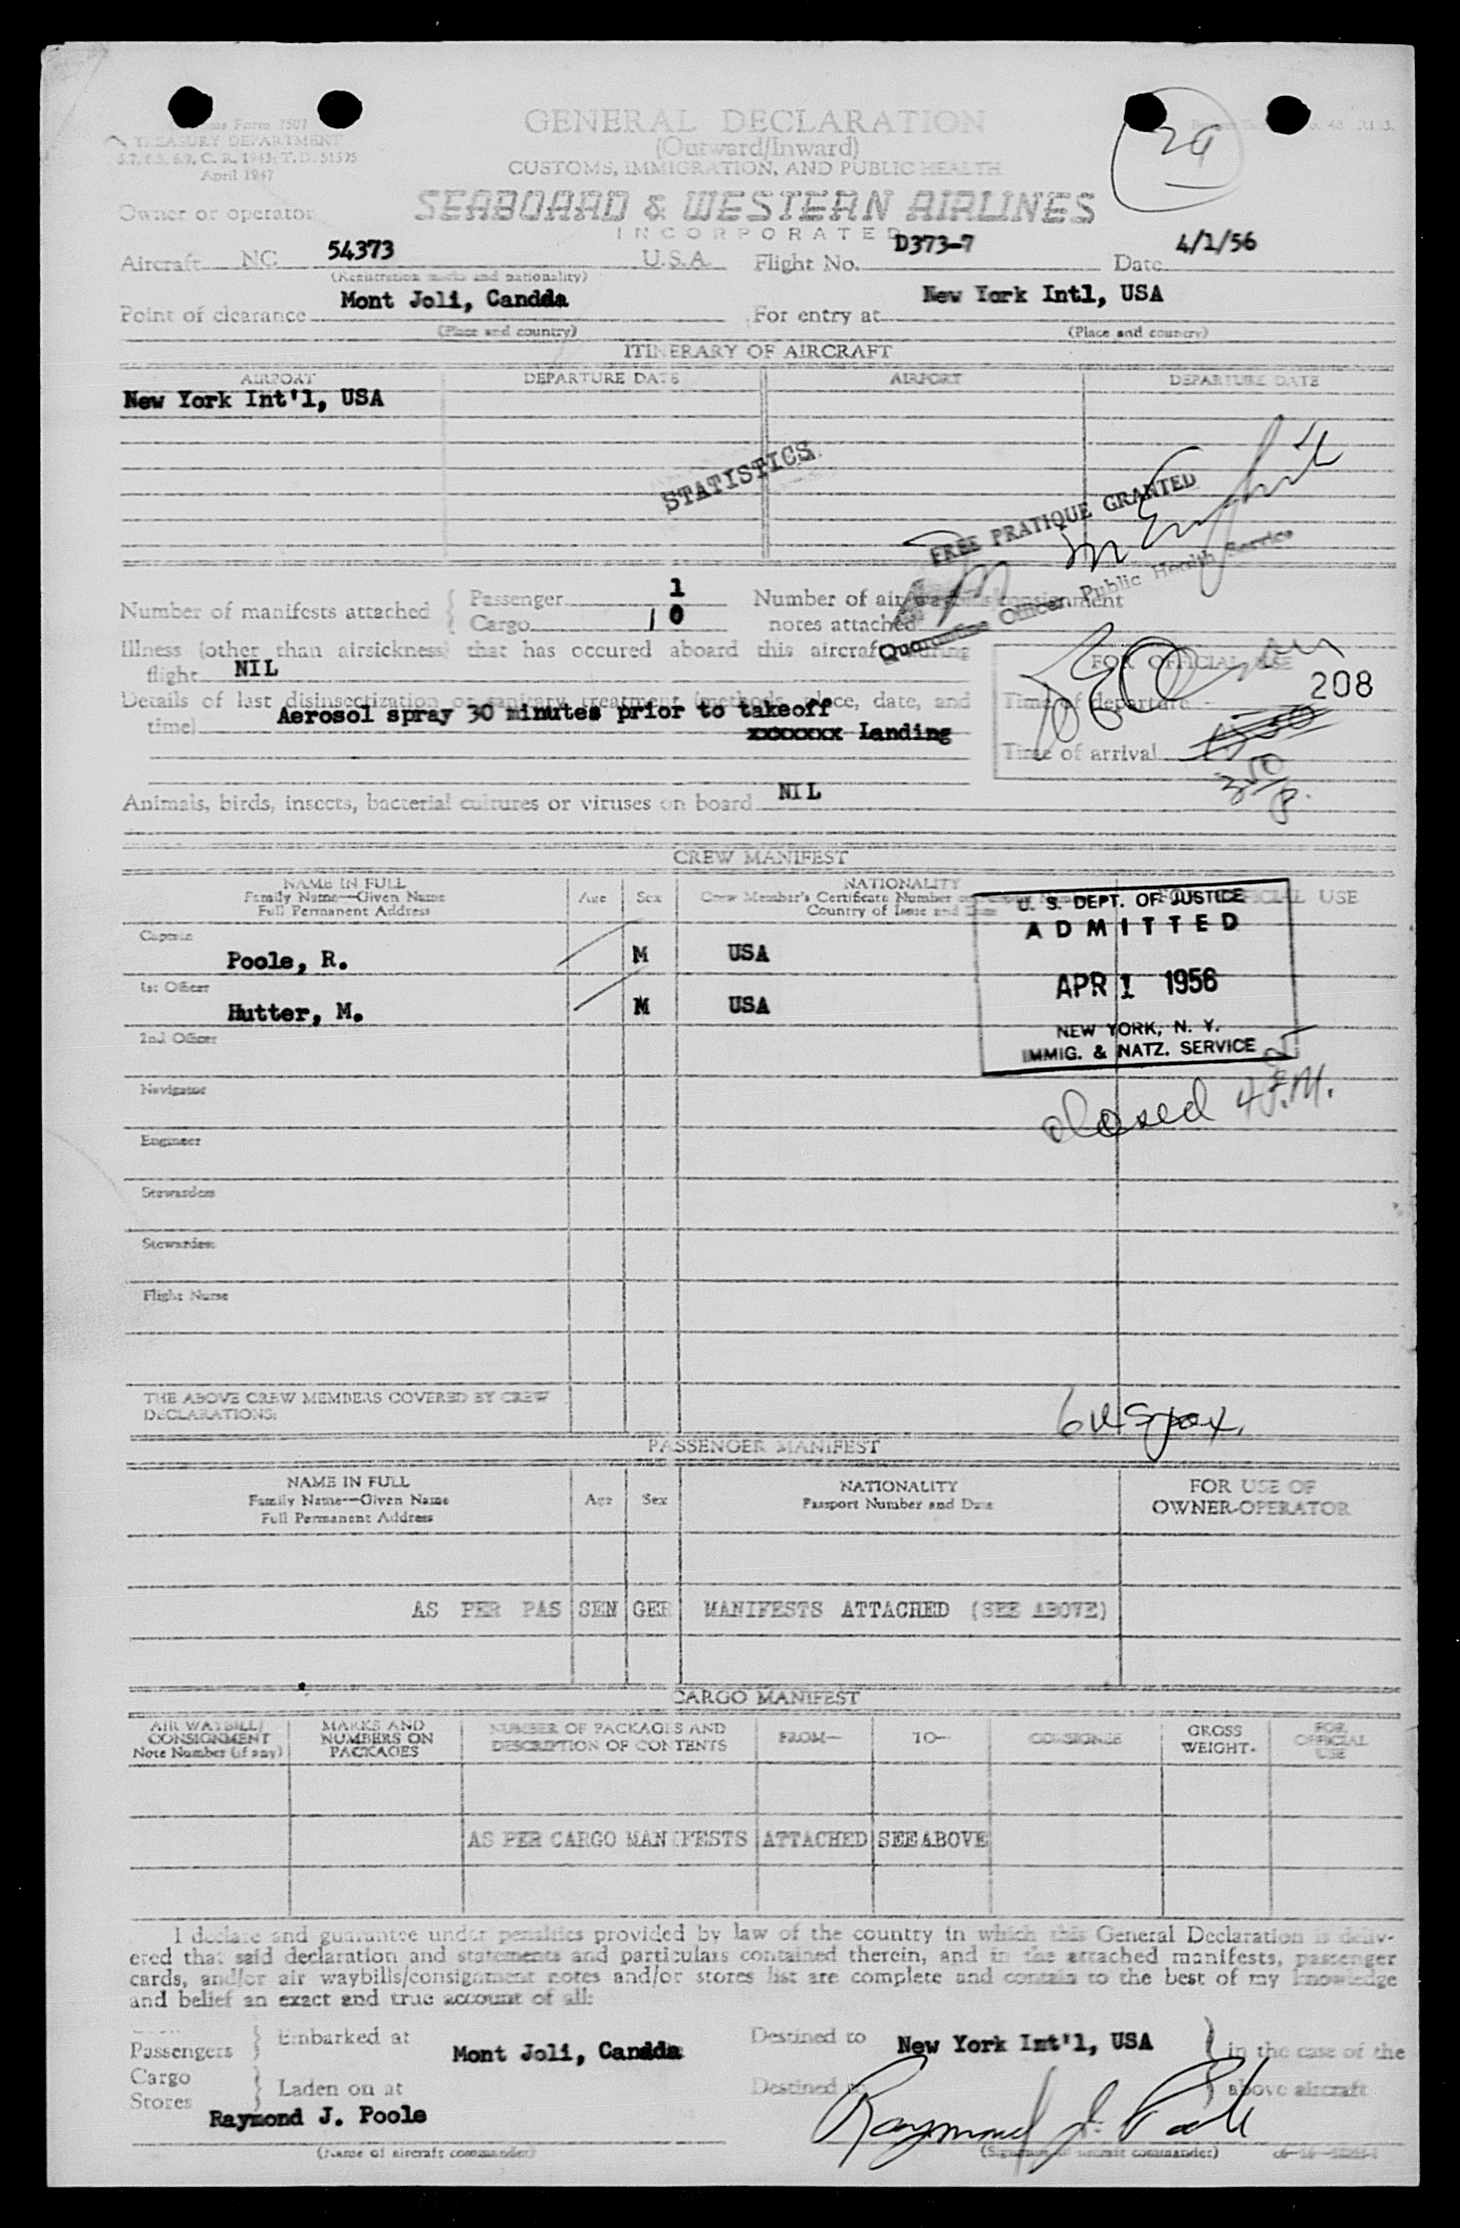 29
Form 7507
TREASURY DEPARTMENT
April 1947
GENERAL DECLARATION
(Outward/Inward)
CUSTOMS, IMMIGRATION, AND PUBLIC HEALTH
SEABOARD & WESTERN AIRLINES
INCORPORATED
Owner or operator
Aircraft NC 54373 U.S.A. Flight No. D373-7 Date 4/1/56
(Registration marks and nationality)
Point of clearance Mont Joli, Candda For entry at New York Intl, USA
(Place and country) (Place and country)
ITINERARY OF AIRCRAFT
AIRPORT DEPARTURE DATE AIRPORT DEPARTURE DATE
New York Int'l, USA
STATISTICS
FREE PRATIQUE GRANTED
Quarantine Officer Public Health Service
Number of manifests attached { Passenger 1
Cargo 10
Number of air waybills consignment
notes attached
Illness (other than airsickness) that has occured aboard this aircraft during
flight NIL
Details of last disinsectization or sanitary treatment (methods, place, date, and
time) Aerosol spray 30 minutes prior to takeoff
xxxxxxx Landing
FOR OFFICIAL USE
208
Time of departure
Time of arrival
350
P.
Animals, birds, insects, bacterial cultures or viruses on board NIL
CREW MANIFEST
NAME IN FULL
Family Name—Given Name
Full Permanent Address
Age Sex
NATIONALITY
Crew Member's Certificate Number
Country of Issue and Date
FOR OFFICIAL USE
U. S. DEPT. OF JUSTICE
ADMITTED
APR 1 1956
NEW YORK, N. Y.
IMMIG. & NATZ. SERVICE
closed
Captain
Poole, R. M USA
1st Officer
Hutter, M. M USA
2nd Officer
Navigator
Engineer
Stewardess
Stewardess
Flight Nurse
THE ABOVE CREW MEMBERS COVERED BY CREW
DECLARATIONS:
PASSENGER MANIFEST
NAME IN FULL
Family Name—Given Name
Full Permanent Address
Age Sex
NATIONALITY
Passport Number and Date
FOR USE OF
OWNER-OPERATOR
AS PER PAS SEN GER MANIFESTS ATTACHED (SEE ABOVE)
CARGO MANIFEST
AIR WAYBILL/
CONSIGNMENT
Note Number (if any)
MARKS AND
NUMBERS ON
PACKAGES
NUMBER OF PACKAGES AND
DESCRIPTION OF CONTENTS
FROM— TO— CONSIGNEE
GROSS
WEIGHT
FOR
OFFICIAL
USE
AS PER CARGO MANIFESTS ATTACHED SEE ABOVE
I declare and guarantee under penalties provided by law of the country in which this General Declaration is deliv-
ered that said declaration and statements and particulars contained therein, and in the attached manifests, passenger
cards, and/or air waybills/consignment notes and/or stores list are complete and contain to the best of my knowledge
and belief an exact and true account of all:
Passengers } Embarked at Mont Joli, Candda Destined to New York Int'l, USA } in the case of the
Cargo
Stores } Laden on at Destined to above aircraft
Raymond J. Poole Raymond J. Poole
(Name of aircraft commander) (Signature of aircraft commander)